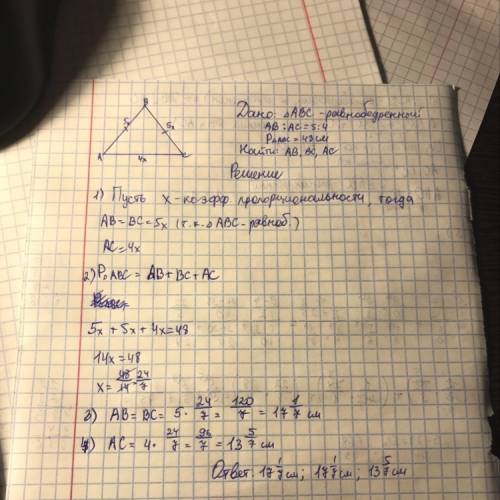 B
5x 5x
A 4x C
Дано: △ABC - равнобедренный
AB : AC = 5:4
P△ABC = 48 см
Найти: AB, BC, AC
Решение
1) Пусть x - коэфф. пропорциональности, тогда
AB = BC = 5x (т.к. △ABC - равноб.)
AC = 4x
2) P△ABC = AB + BC + AC
5x + 5x + 4x = 48
14x = 48
x = 48/14 = 24/7
3) AB = BC = 5 · 24/7 = 120/7 = 17 1/7 см
4) AC = 4 · 24/7 = 96/7 = 13 5/7 см
Ответ: 17 1/7 см; 17 1/7 см; 13 5/7 см